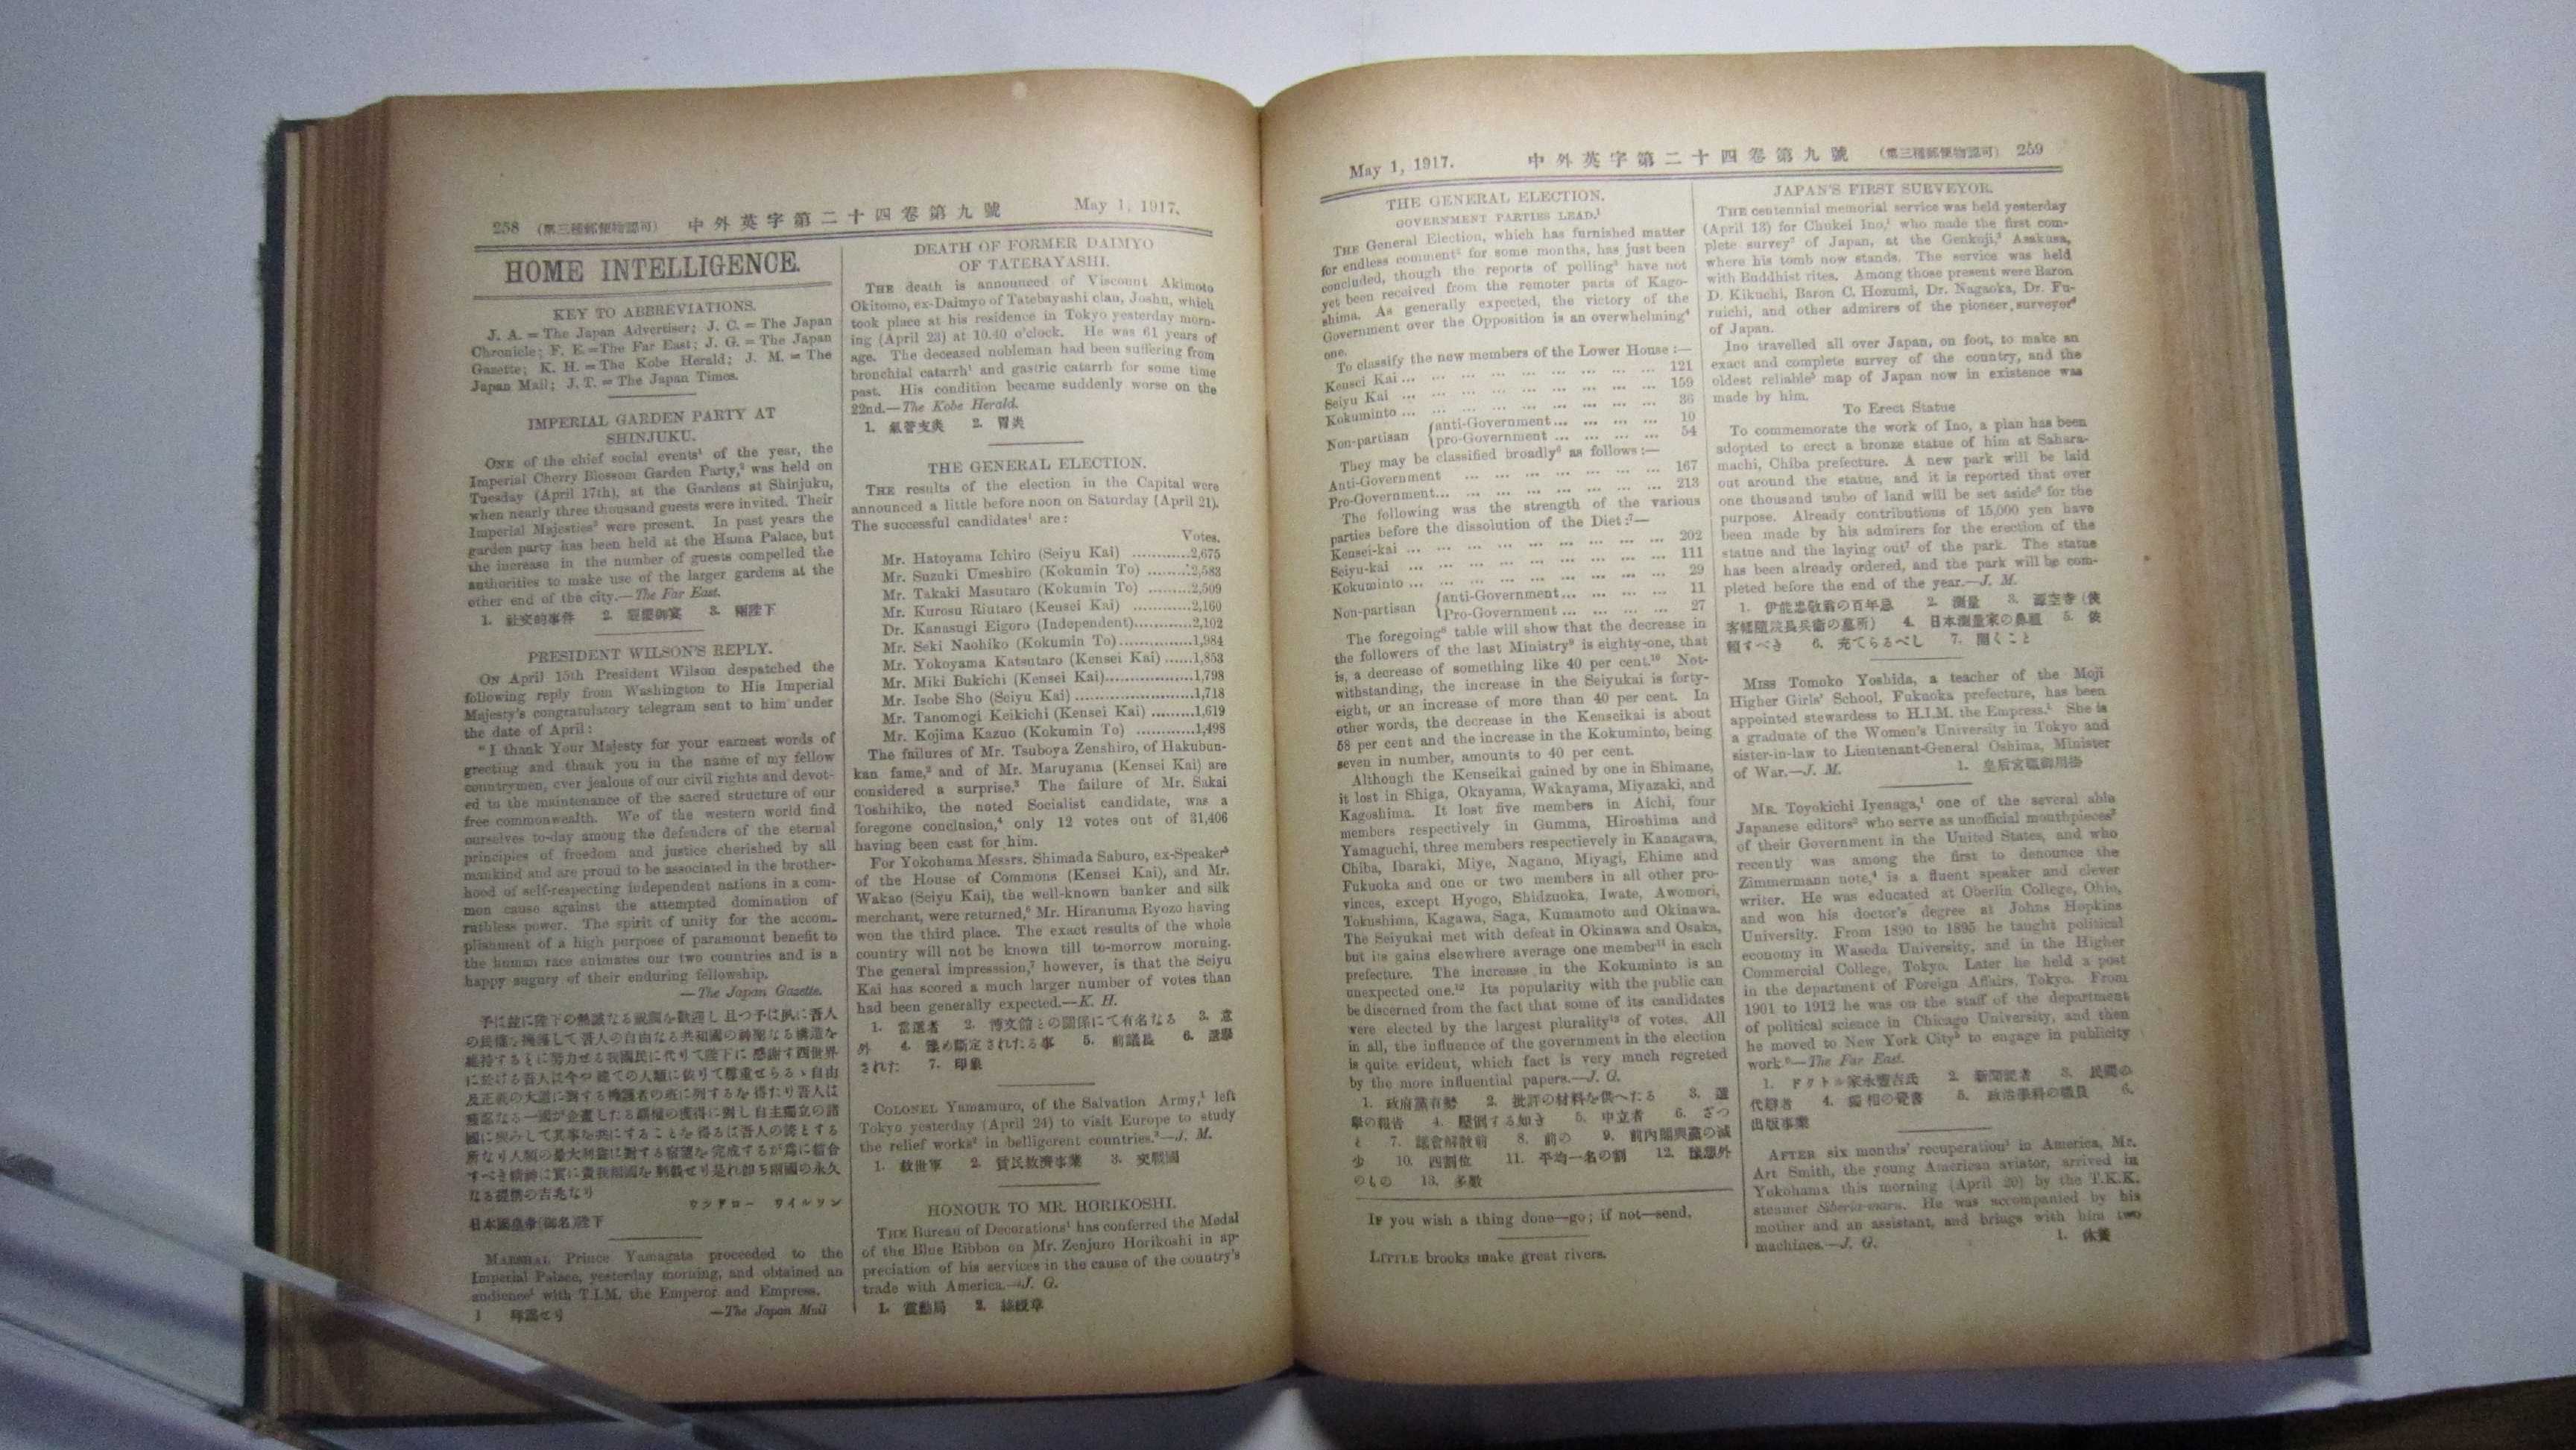 258 (第三種郵便物認可) 中外英字第二十四卷第九號 May 1, 1917.
HOME INTELLIGENCE.
KEY TO ABBREVIATIONS.
J. A. = The Japan Advertiser; J. C. = The Japan
Chronicle; F. E.=The Far East; J. G. = The Japan
Gazette; K. H. = The Kobe Herald; J. M. = The
Japan Mail; J. T. = The Japan Times.
IMPERIAL GARDEN PARTY AT
SHINJUKU.
ONE of the chief social events¹ of the year, the
Imperial Cherry Blossom Garden Party,² was held on
Tuesday (April 17th), at the Gardens at Shinjuku,
when nearly three thousand guests were invited. Their
Imperial Majesties³ were present. In past years the
garden party has been held at the Hama Palace, but
the increase in the number of guests compelled the
authorities to make use of the larger gardens at the
other end of the city.—The Far East.
1. 社交的事件 2. 觀櫻御宴 3. 兩陛下
PRESIDENT WILSON'S REPLY.
ON April 15th President Wilson despatched the
following reply from Washington to His Imperial
Majesty's congratulatory telegram sent to him under
the date of April:
"I thank Your Majesty for your earnest words of
greeting and thank you in the name of my fellow
countrymen, ever jealous of our civil rights and devot-
ed to the maintenance of the sacred structure of our
free commonwealth. We of the western world find
ourselves to-day among the defenders of the eternal
principles of freedom and justice cherished by all
mankind and are proud to be associated in the brother-
hood of self-respecting independent nations in a com-
mon cause against the attempted domination of
ruthless power. The spirit of unity for the accom-
plishment of a high purpose of paramount benefit to
the human race animates our two countries and is a
happy augury of their enduring fellowship.
—The Japan Gazette.
予は茲に陛下の熱誠なる祝詞を歡迎し且つ予は夙に吾人
の民權を擁護して吾人の自由なる共和國の神聖なる構造を
維持するとに努力せる我國民に代りて陛下に感謝す西世界
に於ける吾人は今や總ての人類に依りて尊重せらるゝ自由
及正義の大道に對する擁護者の班に列するを得たり吾人は
なる一國が企畫したる覇權の獲得に對し自主獨立の諸
國に與みして其事を共にすることを得るは吾人の誇とする
所なり人類の最大利益に對する宿望を完成するが爲に結合
すべき精神は實に貴我兩國を刺戟せり是れ卽ち兩國の永久
なる提携の吉兆なり
ウツドロー ウイルソン
日本國皇帝(御名)陛下
MARSHAL Prince Yamagata proceeded to the
Imperial Palace, yesterday morning, and obtained an
audience¹ with T.I.M. the Emperor and Empress.
1 拜謁せり —The Japan Mail
DEATH OF FORMER DAIMYO
OF TATEBAYASHI.
THE death is announced of Viscount Akimoto
Okitomo, ex-Daimyo of Tatebayashi clan, Joshu, which
took place at his residence in Tokyo yesterday morn-
ing (April 23) at 10.40 o'clock. He was 61 years of
age. The deceased nobleman had been suffering from
bronchial catarrh¹ and gastric catarrh for some time
past. His condition became suddenly worse on the
22nd.—The Kobe Herald.
1. 氣管支炎 2. 胃炎
THE GENERAL ELECTION.
THE results of the election in the Capital were
announced a little before noon on Saturday (April 21).
The successful candidates¹ are:
Votes.
Mr. Hatoyama Ichiro (Seiyu Kai) ............2,675
Mr. Suzuki Umeshiro (Kokumin To) .........2,583
Mr. Takaki Masutaro (Kokumin To) .........2,509
Mr. Kurosu Riutaro (Kensei Kai) ............2,160
Dr. Kanasugi Eigoro (Independent)............2,102
Mr. Seki Naohiko (Kokumin To)...............1,984
Mr. Yokoyama Katsutaro (Kensei Kai) ......1,853
Mr. Miki Bukichi (Kensei Kai)..................1,798
Mr. Isobe Sho (Seiyu Kai) ........................1,718
Mr. Tanomogi Keikichi (Kensei Kai) .........1,619
Mr. Kojima Kazuo (Kokumin To) ............1,498
The failures of Mr. Tsuboya Zenshiro, of Hakubun-
kan fame,² and of Mr. Maruyama (Kensei Kai) are
considered a surprise.³ The failure of Mr. Sakai
Toshihiko, the noted Socialist candidate, was a
foregone conclusion,⁴ only 12 votes out of 31,406
having been cast for him.
For Yokohama Messrs. Shimada Saburo, ex-Speaker⁵
of the House of Commons (Kensei Kai), and Mr.
Wakao (Seiyu Kai), the well-known banker and silk
merchant, were returned,⁶ Mr. Hiranuma Ryozo having
won the third place. The exact results of the whole
country will not be known till to-morrow morning.
The general impresssion,⁷ however, is that the Seiyu
Kai has scored a much larger number of votes than
had been generally expected.—K. H.
1. 當選者 2. 博文館との關係にて有名なる 3. 意
外 4. 豫め斷定されたる事 5. 前議長 6. 選擧
された 7. 印象
COLONEL Yamamuro, of the Salvation Army,¹ left
Tokyo yesterday (April 24) to visit Europe to study
the relief works² in belligerent countries.³—J. M.
1. 救世軍 2. 貧民救濟事業 3. 交戰國
HONOUR TO MR. HORIKOSHI.
THE Bureau of Decorations¹ has conferred the Medal
of the Blue Ribbon on Mr. Zenjuro Horikoshi in ap-
preciation of his services in the cause of the country's
trade with America.—J. G.
1. 賞勳局 2. 綠綬章
May 1, 1917. 中外英字第二十四卷第九號 (第三種郵便物認可) 259
THE GENERAL ELECTION.
GOVERNMENT PARTIES LEAD.¹
THE General Election, which has furnished matter
for endless comment² for some months, has just been
concluded, though the reports of polling³ have not
yet been received from the remoter parts of Kago-
shima. As generally expected, the victory of the
Government over the Opposition is an overwhelming⁴
one.
To classify the new members of the Lower House:—
Kensei Kai ... ... ... ... ... ... ... ... ... 121
Seiyu Kai ... ... ... ... ... ... ... ... ... 159
Kokuminto ... ... ... ... ... ... ... ... ... 36
Non-partisan {anti-Government ... ... ... ... 10
{pro-Government ... ... ... ... 54
They may be classified broadly⁶ as follows:—
Anti-Government ... ... ... ... ... ... ... 167
Pro-Government... ... ... ... ... ... ... ... 213
The following was the strength of the various
parties before the dissolution of the Diet:⁷—
Kensei-kai ... ... ... ... ... ... ... ... ... 202
Seiyu-kai ... ... ... ... ... ... ... ... ... 111
Kokuminto ... ... ... ... ... ... ... ... ... 29
Non-partisan {anti-Government... ... ... ... 11
{Pro-Government ... ... ... ... 27
The foregoing⁸ table will show that the decrease in
the followers of the last Ministry⁹ is eighty-one, that
is, a decrease of something like 40 per cent.¹⁰ Not-
withstanding, the increase in the Seiyukai is forty-
eight, or an increase of more than 40 per cent. In
other words, the decrease in the Kenseikai is about
58 per cent and the increase in the Kokuminto, being
seven in number, amounts to 40 per cent.
Although the Kenseikai gained by one in Shimane,
it lost in Shiga, Okayama, Wakayama, Miyazaki, and
Kagoshima. It lost five members in Aichi, four
members respectively in Gumma, Hiroshima and
Yamaguchi, three members respectievely in Kanagawa,
Chiba, Ibaraki, Miye, Nagano, Miyagi, Ehime and
Fukuoka and one or two members in all other pro-
vinces, except Hyogo, Shidzuoka, Iwate, Awomori,
Tokushima, Kagawa, Saga, Kumamoto and Okinawa.
The Seiyukai met with defeat in Okinawa and Osaka,
but its gains elsewhere average one member¹¹ in each
prefecture. The increase in the Kokuminto is an
unexpected one.¹² Its popularity with the public can
be discerned from the fact that some of its candidates
were elected by the largest plurality¹³ of votes. All
in all, the influence of the government in the election
is quite evident, which fact is very much regretted
by the more influential papers.—J. G.
1. 政府黨有勢 2. 批評の材料を供へたる 3. 選
擧の報告 4. 壓倒する如き 5. 中立者 6. ざつ
と 7. 議會解散前 8. 前の 9. 前內閣與黨の減
少 10. 四割位 11. 平均一名の割 12. 豫想外
のもの 13. 多數
IF you wish a thing done—go; if not—send.
LITTLE brooks make great rivers.
JAPAN'S FIRST SURVEYOR.
THE centennial memorial service was held yesterday
(April 13) for Chukei Ino,¹ who made the first com-
plete survey² of Japan, at the Genkuji,³ Asakusa,
where his tomb now stands. The service was held
with Buddhist rites. Among those present were Baron
D. Kikuchi, Baron C. Hozumi, Dr. Nagaoka, Dr. Fu-
ruichi, and other admirers of the pioneer surveyor⁴
of Japan.
Ino travelled all over Japan, on foot, to make an
exact and complete survey of the country, and the
oldest reliable⁵ map of Japan now in existence was
made by him.
To Erect Statue
To commemorate the work of Ino, a plan has been
adopted to erect a bronze statue of him at Sahara-
machi, Chiba prefecture. A new park will be laid
out around the statue, and it is reported that over
one thousand tsubo of land will be set aside⁶ for the
purpose. Already contributions of 15,000 yen have
been made by his admirers for the erection of the
statue and the laying out⁷ of the park. The statue
has been already ordered, and the park will be com-
pleted before the end of the year.—J. M.
1. 伊能忠敬翁の百年忌 2. 測量 3. 源空寺(俠
客幡隨院長兵衞の墓所) 4. 日本測量家の鼻祖 5. 依
賴すべき 6. 充てらるべし 7. 開くこと
MISS Tomoko Yoshida, a teacher of the Moji
Higher Girls' School, Fukuoka prefecture, has been
appointed stewardess to H.I.M. the Empress.¹ She is
a graduate of the Women's University in Tokyo and
sister-in-law to Lieutenant-General Oshima, Minister
of War.—J. M. 1. 皇后宮職御用掛
MR. Toyokichi Iyenaga,¹ one of the several able
Japanese editors² who serve as unofficial mouthpieces³
of their Government in the United States, and who
recently was among the first to denounce the
Zimmermann note,⁴ is a fluent speaker and clever
writer. He was educated at Oberlin College, Ohio,
and won his doctor's degree at Johns Hopkins
University. From 1890 to 1895 he taught political
economy in Waseda University, and in the Higher
Commercial College, Tokyo. Later he held a post
in the department of Foreign Affairs, Tokyo. From
1901 to 1912 he was on the staff of the department
of political science in Chicago University, and then
he moved to New York City⁵ to engage in publicity
work⁶—The Far East.
1. ドクトル家永豐吉氏 2. 新聞記者 3. 民間の
代辯者 4. 獨相の覺書 5. 政治學科の職員 6.
出版事業
AFTER six months' recuperation¹ in America, Mr.
Art Smith, the young American aviator, arrived in
Yokohama this morning (April 20) by the T.K.K.
steamer Siberia-maru. He was accompanied by his
mother and an assistant, and brings with him two
machines.—J. G. 1. 休養